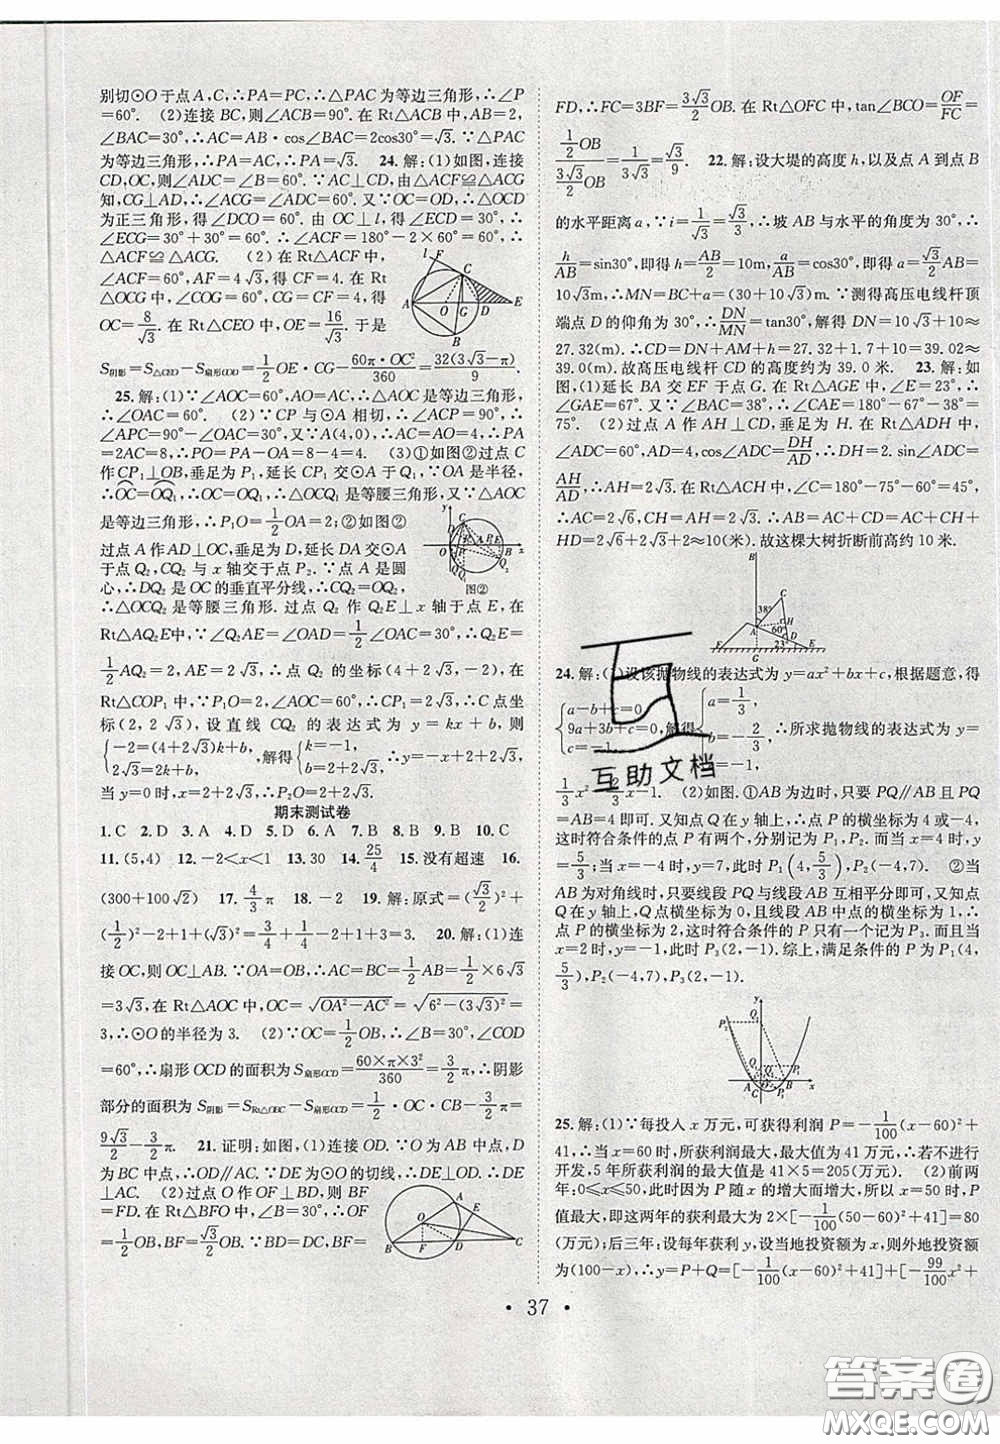 别切⊙O于点A,C,∴PA=PC,∴△PAC为等边三角形,∴∠P
=60°. (2)连接BC,则∠ACB=90°.在Rt△ACB中,AB=2,
∠BAC=30°,∴AC=AB·cos∠BAC=2cos30°=√3.∵△PAC
为等边三角形,∴PA=AC,∴PA=√3. 24.解:(1)如图,连接
CD,BC,则∠ADC=∠B=60°.∵AC⊥CD,CG⊥AD,∴
知,CG⊥AD,∴∠ACG=∠ADC=60°.又∵OC=OD,∴△OCD
为正三角形,得∠DCO=60°.由OC⊥l,得∠ECD=30°,∴
∠ECG=30°+30°=60°.∴∠ACF=180°-2×60°=60°.∴
△ACF≌△ACG. (2)在Rt△ACF中,
∠ACF=60°,AF=4√3,得CF=4.在Rt△
OCG中,∠COG=60°,CG=CF=4,得
OC=8/√3.在Rt△CEO中,OE=16/√3.于是
S阴影=S△CEO-S扇形COD=1/2OE·CG-60π·OC²/360=32(3√3-π)/9.
25.解:(1)∵∠AOC=60°,AO=AC,∴△AOC是等边三角形,
∴∠OAC=60°. (2)∵CP与⊙A相切,∴∠ACP=90°.
∴∠APC=90°-∠OAC=30°.又∵A(4,0),∴AC=AO=4,∴PA
=2AC=8,∴PO=PA-OA=8-4=4. (3)①如图②过点C
作CP₁⊥OB,垂足为P₁,延长CP₁交⊙A于Q₁,∵OA是半径,
∴OC=OQ₁,∴OC=OQ₁,∴△OCQ₁是等腰三角形,又∵△AOC
是等边三角形,∴P₁O=1/2OA=2;②如图②
过点A作AD⊥OC,垂足为D,延长DA交⊙A
于点Q₂,CQ₂与x轴交于点P₂.∵点A是圆
心,∴DQ₂是OC的垂直平分线,∴CQ₂=OQ₂,
图②
∴△OCQ₂是等腰三角形.过点Q₂作Q₂E⊥x轴于点E,在
Rt△AQ₂E中,∵∠Q₂AE=∠OAD=1/2∠OAC=30°,∴Q₂E=
1/2AQ₂=2,AE=2√3,∴点Q₂的坐标(4+2√3,-2),在
Rt△COP₁中,∵P₁O=2,∠AOC=60°,∴CP₁=2√3,∴C点坐
标(2,2√3),设直线CQ₂的表达式为y=kx+b,则
{-2=(4+2√3)k+b,2√3=2k+b,解得{k=-1,b=2+2√3,∴y=-x+2+2√3,
当y=0时,x=2+2√3,∴P₂O=2+2√3.
期末测试卷
1.C 2.D 3.A 4.D 5.A 6.D 7.B 8.B 9.B 10.C
11.(5,4) 12.-2<x<1 13.30 14.25/4 15.没有超速 16.
(300+100√2) 17.4/3π 18.-2 19.解:原式=(√3/2)²+
(1/2)²-2+1+(√3)²=3/4+1/4-2+1+3=3. 20.解:(1)连
接OC,则OC⊥AB.∵OA=OB,∴AC=BC=1/2AB=1/2×6√3
=3√3.在Rt△AOC中,OC=√(OA²-AC²)=√(6²-(3√3)²)=
3,∴⊙O的半径为3. (2)∵OC=1/2OB,∴∠B=30°,∠COD
=60°,∴扇形OCD的面积为S扇形OCD=60×π×3²/360=3/2π,∴阴影
部分的面积为S阴影=S Rt△OBC-S扇形OCD=1/2·OC·CB-3/2π=
9√3/2-3/2π. 21.证明:如图,(1)连接OD.∵O为AB中点,D
为BC中点,∴OD∥AC.∵DE为⊙O的切线,∴DE⊥OD,∴
DE⊥AC. (2)过点O作OF⊥BD,则BF=
FD.在Rt△BFO中,∠B=30°,∴OF
=1/2OB,BF=√3/2OB.∵BD=DC,BF=
FD,∴FC=3BF=3√3/2OB.在Rt△OFC中,tan∠BCO=OF/FC
=(1/2OB)/(3√3/2OB)=1/(3√3)=√3/9. 22.解:设大堤的高度h,以及点A到点B
的水平距离a,∵i=1/√3=√3/3,∴坡AB与水平的角度为30°,∴
h/AB=sin30°,即得h=AB/2=10m,a/AB=cos30°,即得a=√3/2AB=
10√3m,∴MN=BC+a=(30+10√3)m.∵测得高压电线杆顶
端点D的仰角为30°,∴DN/MN=tan30°,解得DN=10√3+10≈
27.32(m).∴CD=DN+AM+h=27.32+1.7+10=39.02≈
39.0(m).故高压电线杆CD的高度约为39.0米. 23.解:如
图,(1)延长BA交EF于点G.在Rt△AGE中,∠E=23°,∴
∠GAE=67°.又∵∠BAC=38°,∴∠CAE=180°-67°-38°=
75°. (2)过点A作AH⊥CD,垂足为H.在Rt△ADH中,
∠ADC=60°,AD=4,cos∠ADC=DH/AD,∴DH=2.sin∠ADC=
AH/AD,∴AH=2√3.在Rt△ACH中,∠C=180°-75°-60°=45°,
∴AC=2√6,CH=AH=2√3.∴AB=AC+CD=AC+CH+
HD=2√6+2√3+2≈10(米).故这棵大树折断前高约10米.
24.解:(1)设该抛物线的表达式为y=ax²+bx+c,根据题意,得
{a-b+c=0,9a+3b+c=0,c=-1,解得{a=1/3,b=-2/3,c=-1,∴所求抛物线的表达式为y=
1/3x²-2/3x-1. (2)如图.①AB为边时,只要PQ∥AB且PQ=
AB=4即可.又知点Q在y轴上,∴点P的横坐标为4或-4,
这时符合条件的点P有两个,分别记为P₁,P₂.而当x=4时,y
=5/3;当x=-4时,y=7,此时P₁(4,5/3),P₂(-4,7). ②当
AB为对角线时,只要线段PQ与线段AB互相平分即可,又知点
Q在y轴上,Q点横坐标为0,且线段AB中点的横坐标为1,∴
点P的横坐标为2,这时符合条件的P只有一个记为P₃.而且当
x=2时,y=-1,此时P₃(2,-1).综上,满足条件的P为P₁(4,
5/3),P₂(-4,7),P₃(2,-1).
25.解:(1)∵每投入x万元,可获得利润P=-1/100(x-60)²+
41,∴当x=60时,所获利润最大,最大值为41万元,∴若不进行
开发,5年所获利润的最大值是41×5=205(万元). (2)前两
年:0≤x≤50,此时因为P随x的增大而增大,所以x=50时,P
值最大,即这两年的获利最大为2×[-1/100(50-60)²+41]=80
(万元);后三年:设每年获利y,设当地投资额为x,则外地投资额
为(100-x),∴y=P+Q=[-1/100(x-60)²+41]+[-99/100x²+
·37·
互助文档
答案圈
MXQE.COM